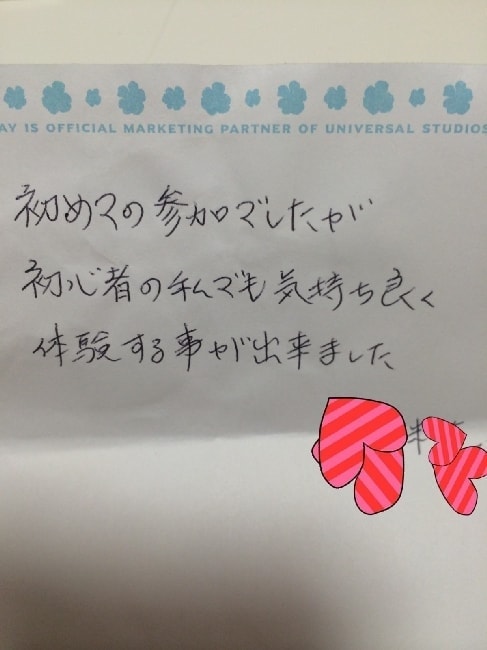 AY IS OFFICIAL MARKETING PARTNER OF UNIVERSAL STUDIOS
初めての参加でしたが
初心者の私でも気持ち良く
体験する事が出来ました